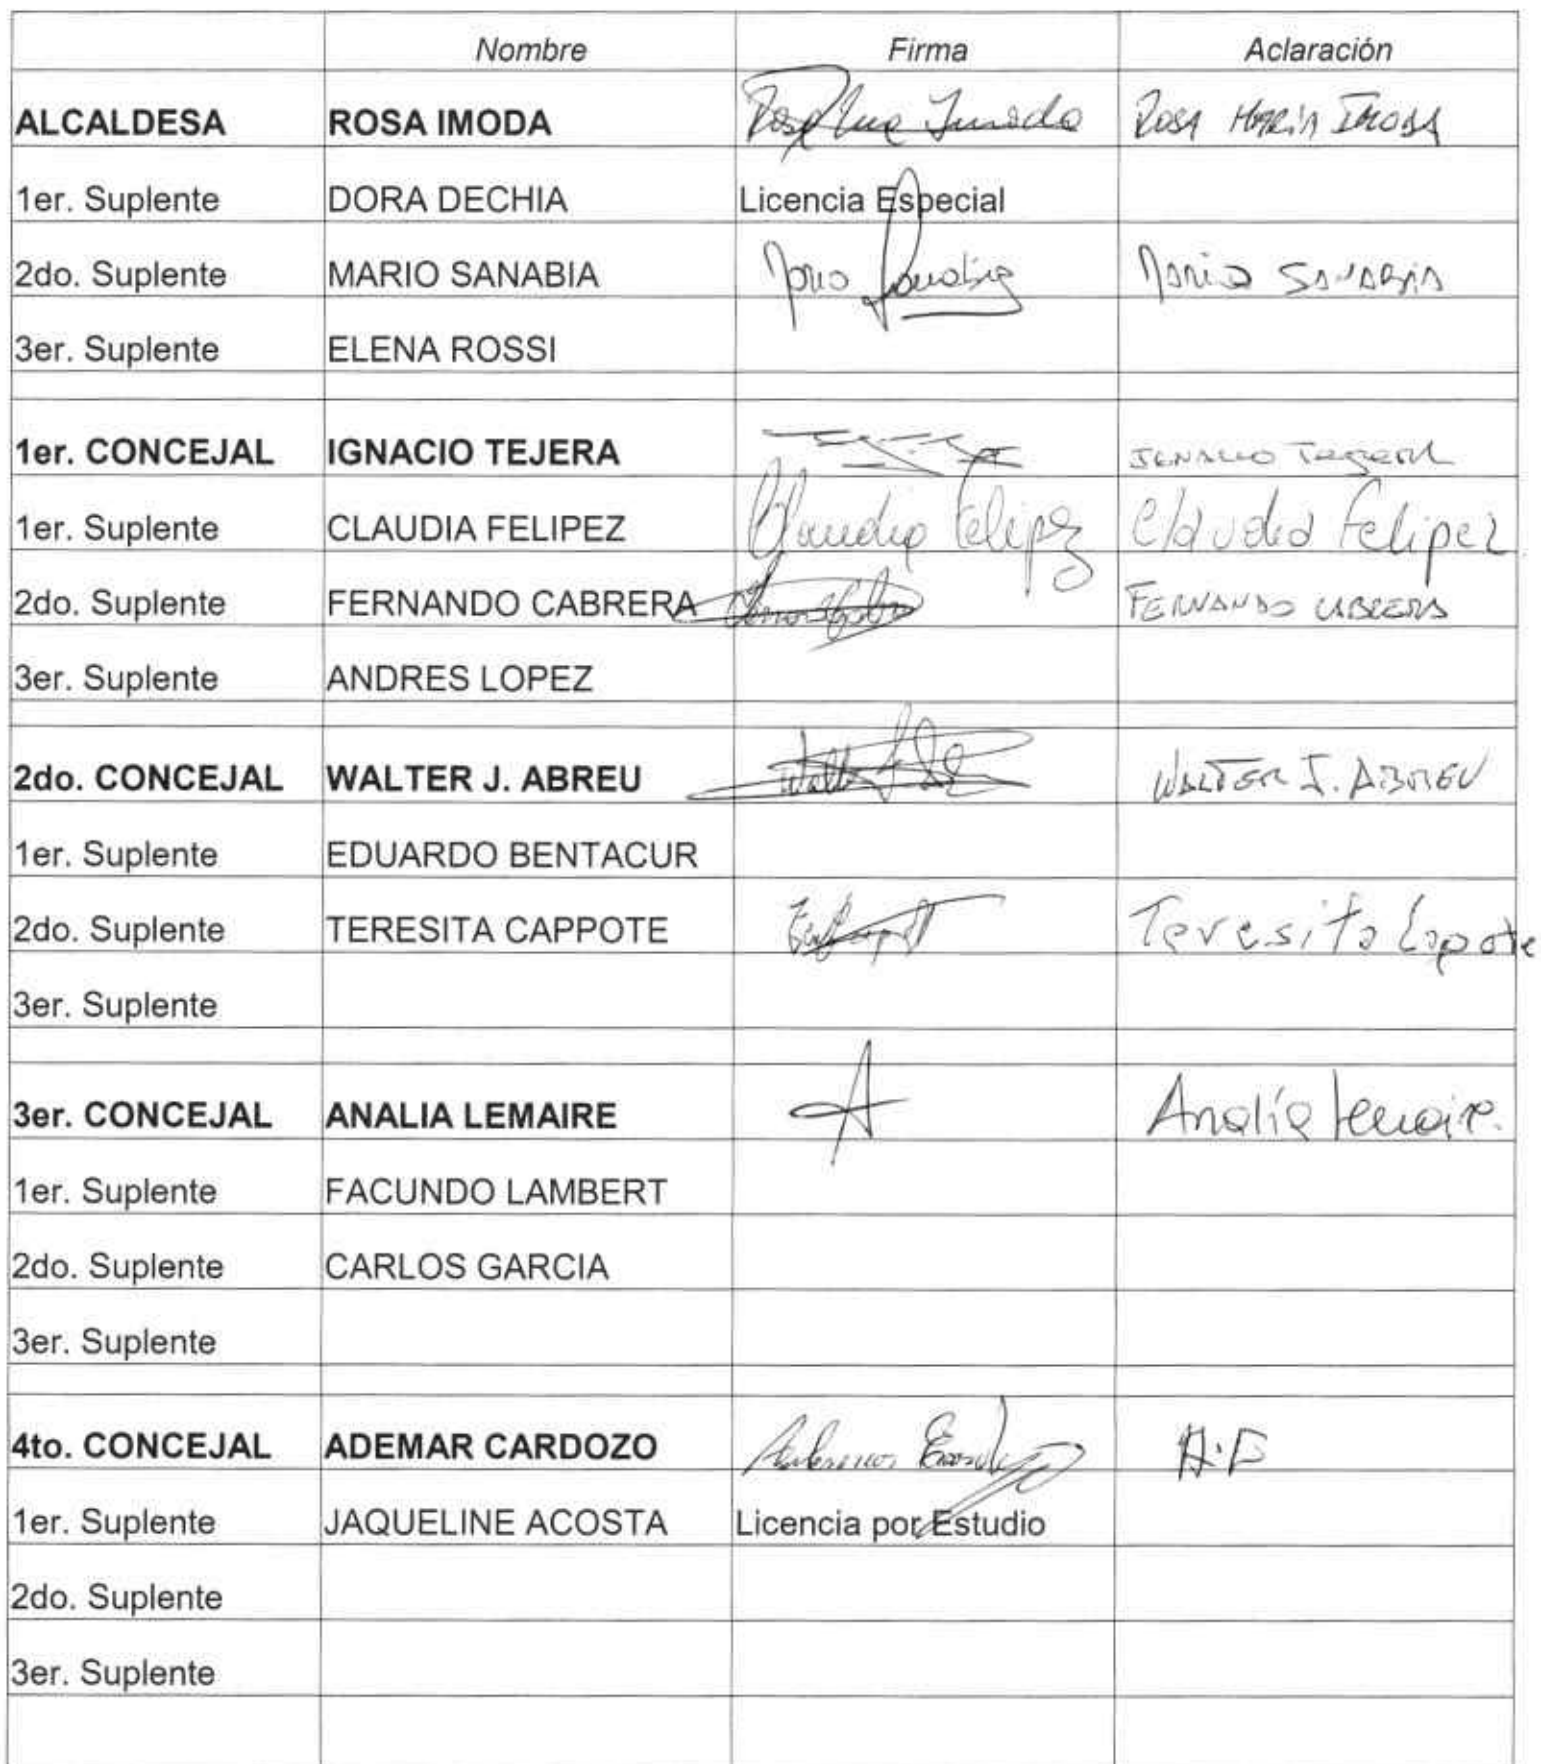 Nombre Firma Aclaración
ALCALDESA ROSA IMODA Rosa María Imoda ROSA MARÍA IMODA
1er. Suplente DORA DECHIA Licencia Especial
2do. Suplente MARIO SANABIA Mario Sanabia MARIO SANABIA
3er. Suplente ELENA ROSSI
1er. CONCEJAL IGNACIO TEJERA IGNACIO TEJERA
1er. Suplente CLAUDIA FELIPEZ Claudia Felipez Claudia Felipez
2do. Suplente FERNANDO CABRERA FERNANDO CABRERA
3er. Suplente ANDRES LOPEZ
2do. CONCEJAL WALTER J. ABREU WALTER J. ABREU
1er. Suplente EDUARDO BENTACUR
2do. Suplente TERESITA CAPPOTE Teresita Capote
3er. Suplente
3er. CONCEJAL ANALIA LEMAIRE A Analía Lemaire.
1er. Suplente FACUNDO LAMBERT
2do. Suplente CARLOS GARCIA
3er. Suplente
4to. CONCEJAL ADEMAR CARDOZO
1er. Suplente JAQUELINE ACOSTA Licencia por Estudio
2do. Suplente
3er. Suplente